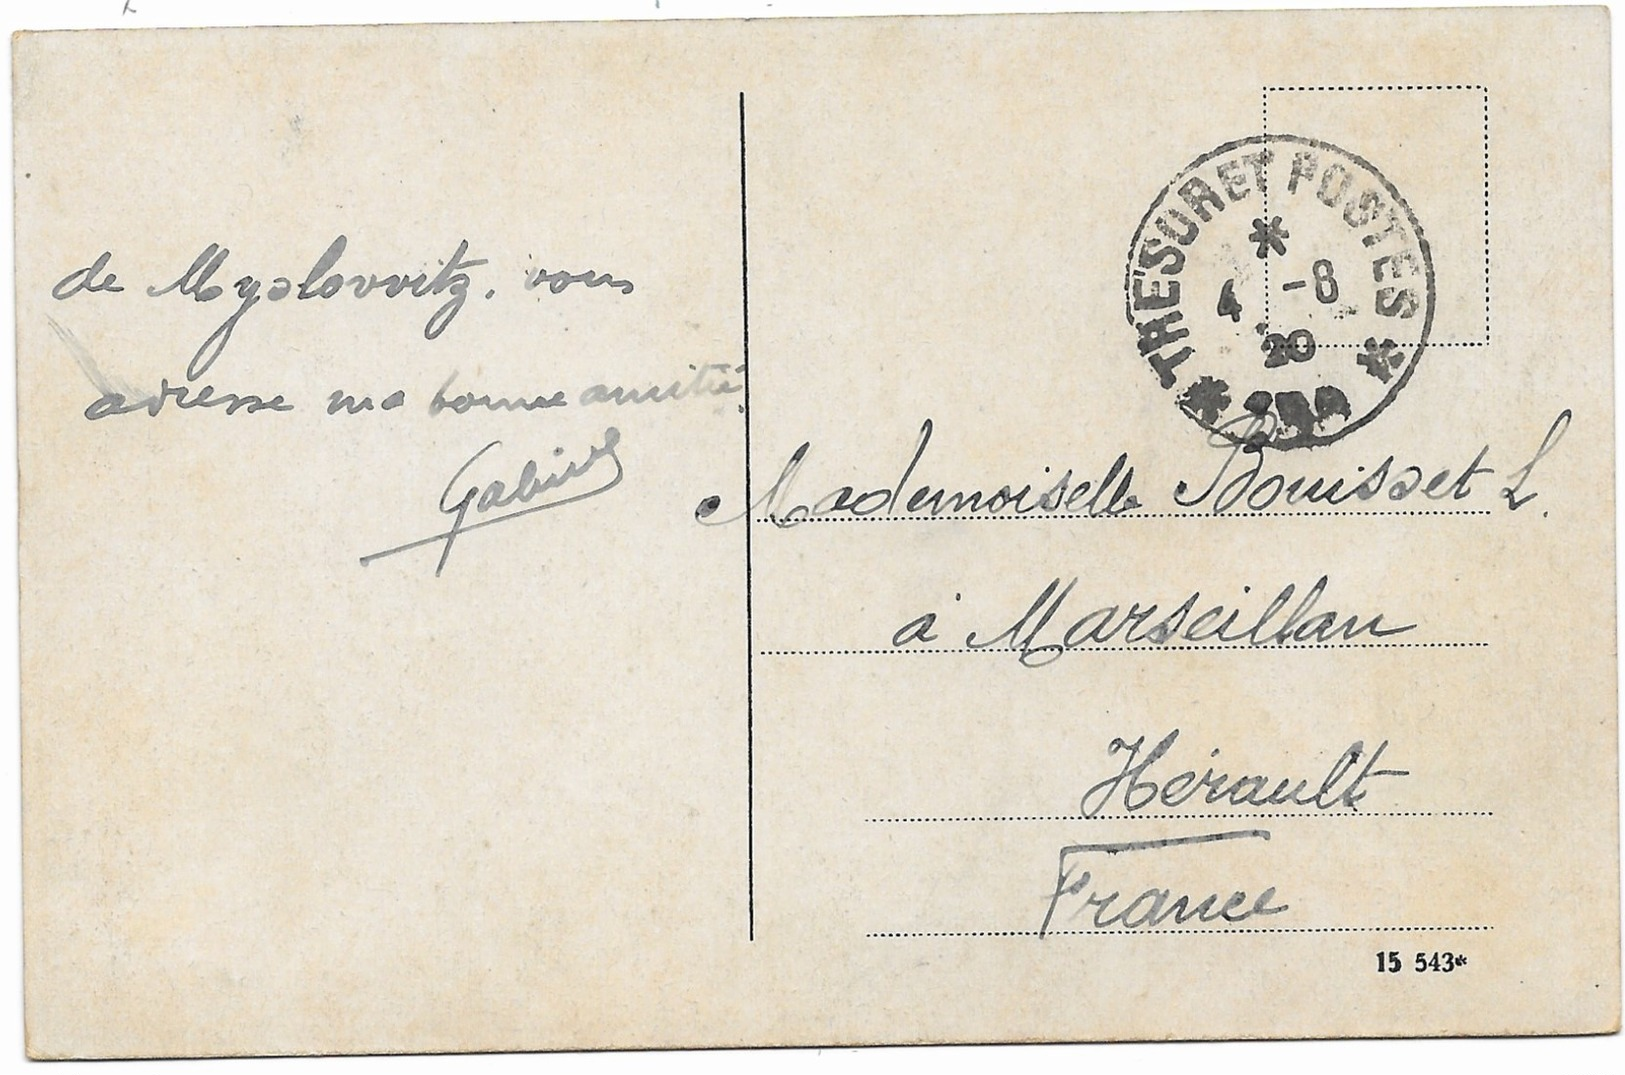 de Myslovvitz. vous
adresse ma bonne amitié.
Gabriel
THESOR ET POSTES
4 -8
20
Mademoiselle Bouisset L.
à Marseillan
Hérault
France
15 543*